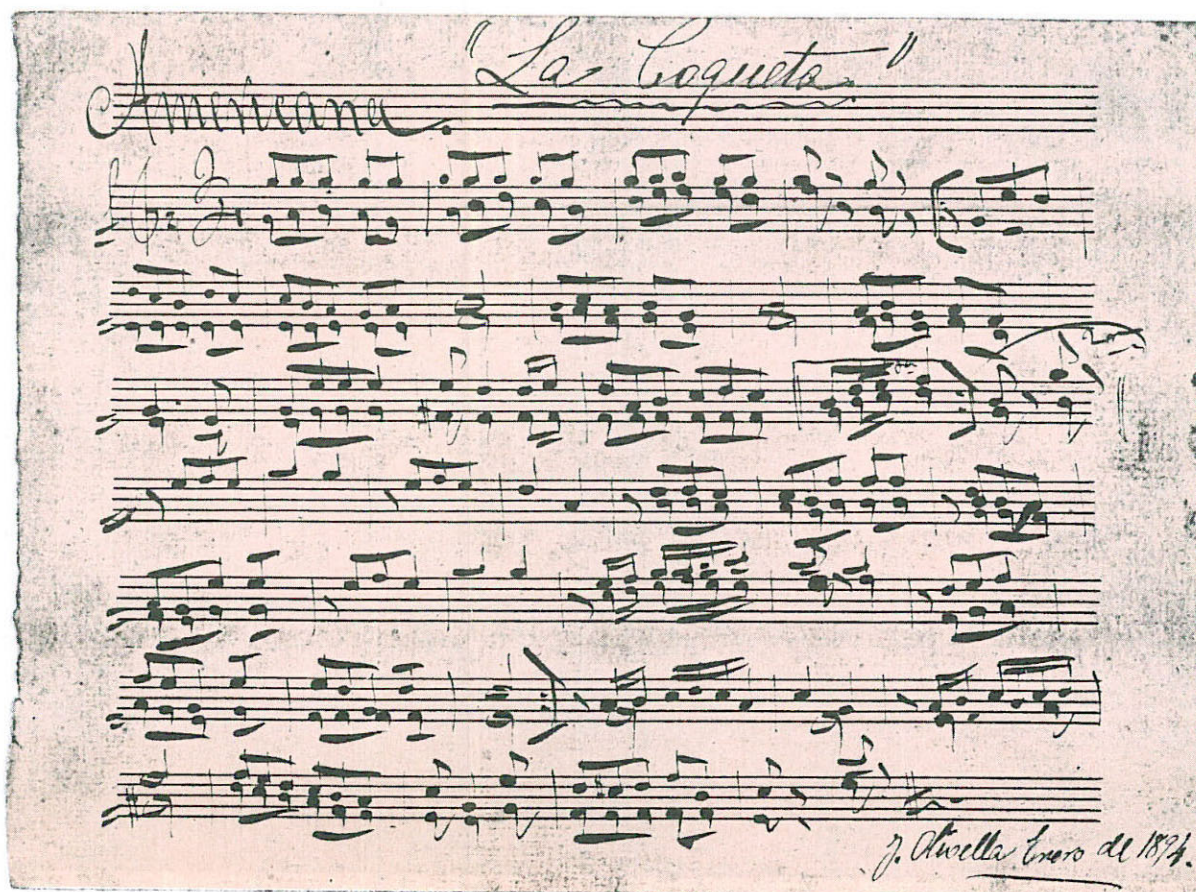 "La Coqueta."
Americana.
J. Olivella Enero de 1894.